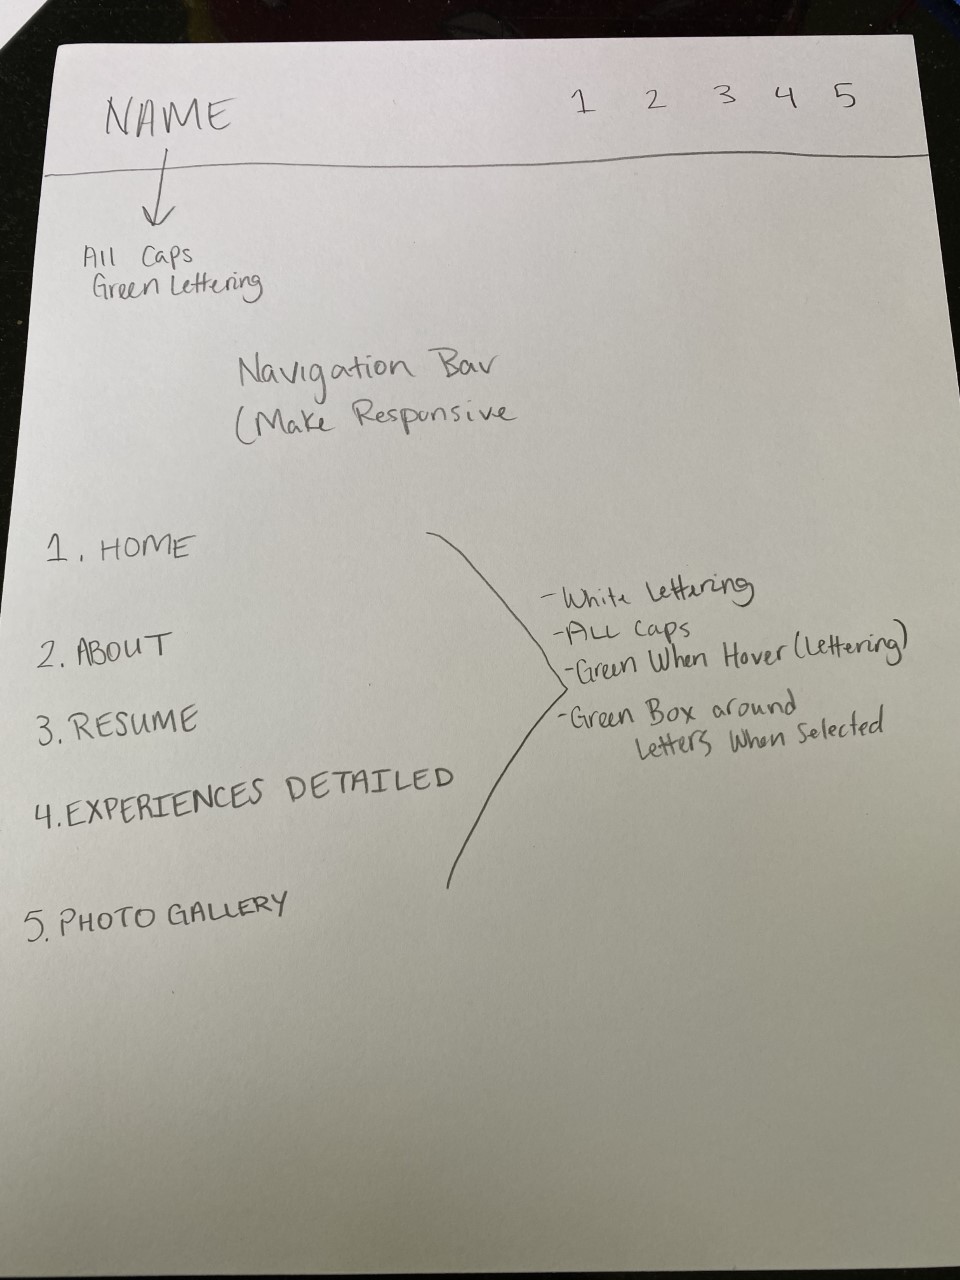 NAME 1 2 3 4 5
All Caps
Green Lettering
Navigation Bar
(Make Responsive
1. HOME
2. ABOUT
3. RESUME
4. EXPERIENCES DETAILED
5. PHOTO GALLERY
- White Lettering
- ALL Caps
- Green When Hover (Lettering)
- Green Box around
Letters When Selected